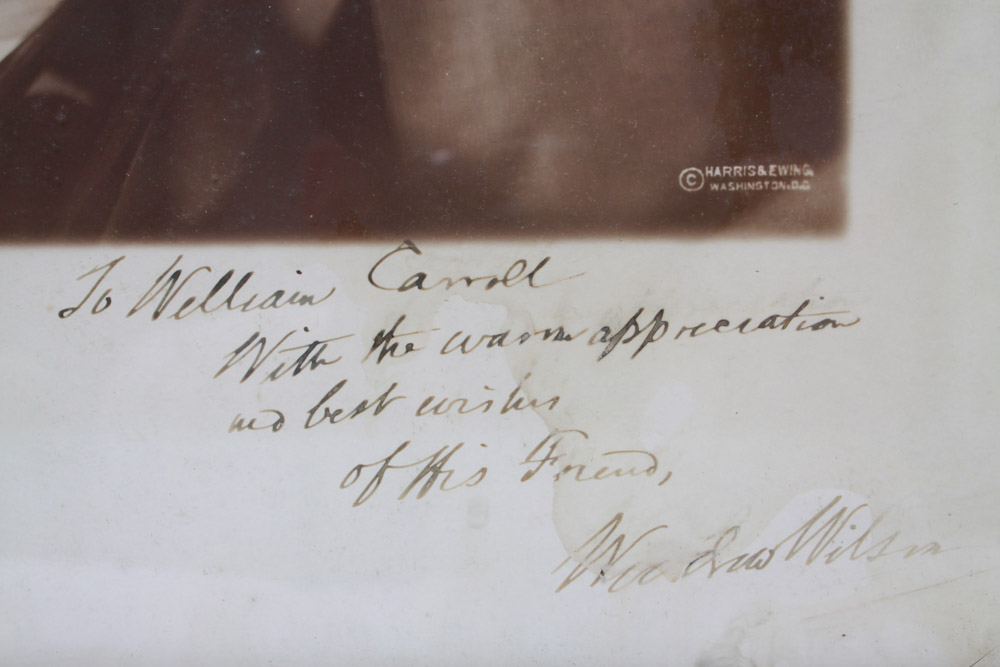 © HARRIS & EWING
WASHINGTON, D.C.
To William Carroll
With the warm appreciation
and best wishes
of His Friend,
Woodrow Wilson